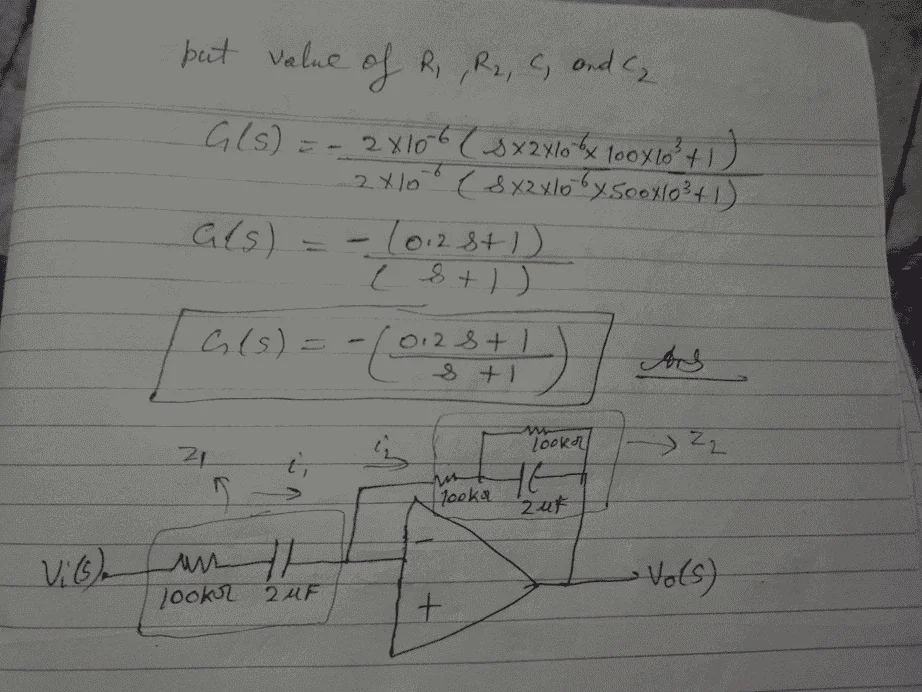 put value of R₁, R₂, C₁ and C₂
G(s) = - 2×10⁻⁶ (s×2×10⁻⁶×100×10³+1)
2×10⁻⁶ (s×2×10⁻⁶×500×10³+1)
G(s) = - (0.2s+1)
(s+1)
G(s) = - (0.2s+1
s+1) Ans
Z₁ i₁ i₂ 100kΩ → Z₂
100kΩ 2μF
Vi(s) 100kΩ 2μF - + Vo(s)